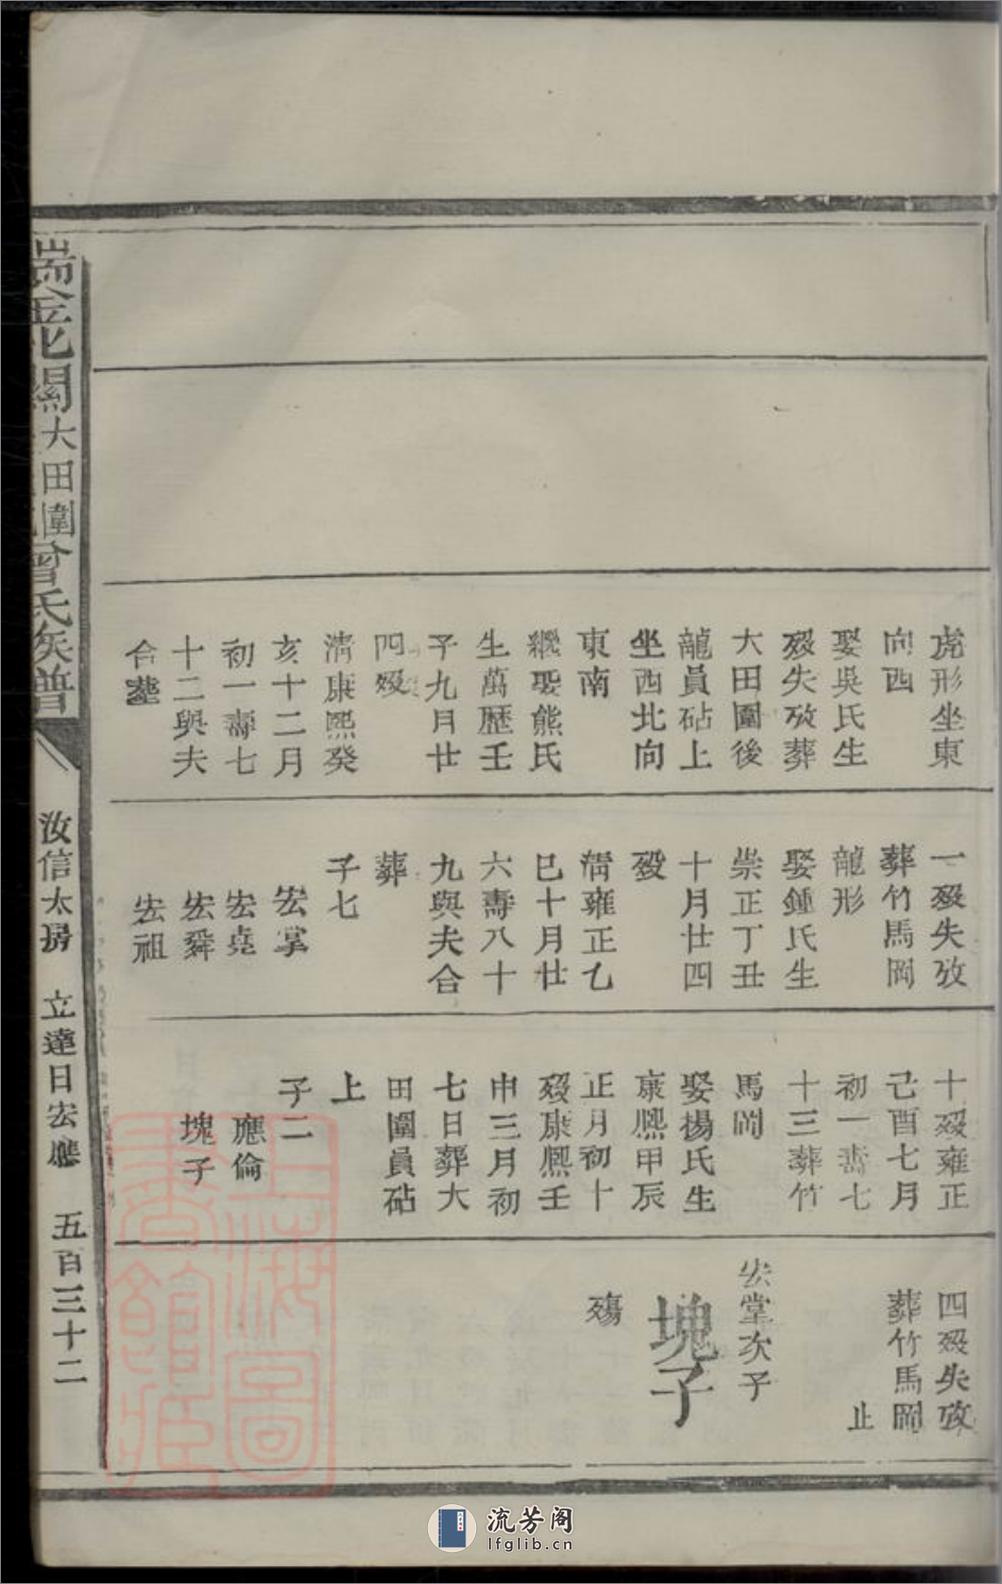 虎形坐東
向西
娶吳氏生
歿失攷葬
大田圍後
龍員砧上
坐西北向
東南
繼娶熊氏
生萬歷壬
子九月廿
四歿
清康熙癸
亥十二月
初一壽七
十二與夫
合葬
一歿失攷
葬竹馬岡
龍形
娶鍾氏生
崇正丁丑
十月廿四
歿
清雍正乙
巳十月廿
六壽八十
九與夫合
葬
子七
宏掌
宏堯
宏舜
宏祖
十歿雍正
己酉七月
初一壽七
十三葬竹
馬岡
娶揚氏生
康熙甲辰
正月初十
歿康熙壬
申三月初
七日葬大
田圍員砧
上
子二
應倫
塊子
四歿失攷
葬竹馬岡
止
宏堂次子
塊子
殤
瑞金九關大田圍曾氏族譜
汝信太房 立達日宏應 五百三十二
上海圖
書館藏
流芳阁
lfglib.cn